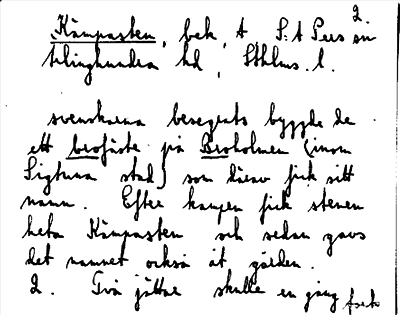 2.
Kämpasten, bek, A, S:t Pers sn
tilinghundra hd, Sthlms. l.
svenskarna besegrats byggde de
ett brofäste på Broholmen (inom
Sigtuna stad) som därav fick sitt
namn. Efter kampen fick stenen
heta Kämpasten och sedan gavs
det namnet också åt gården.
2. Två jättar skulle en gång forts